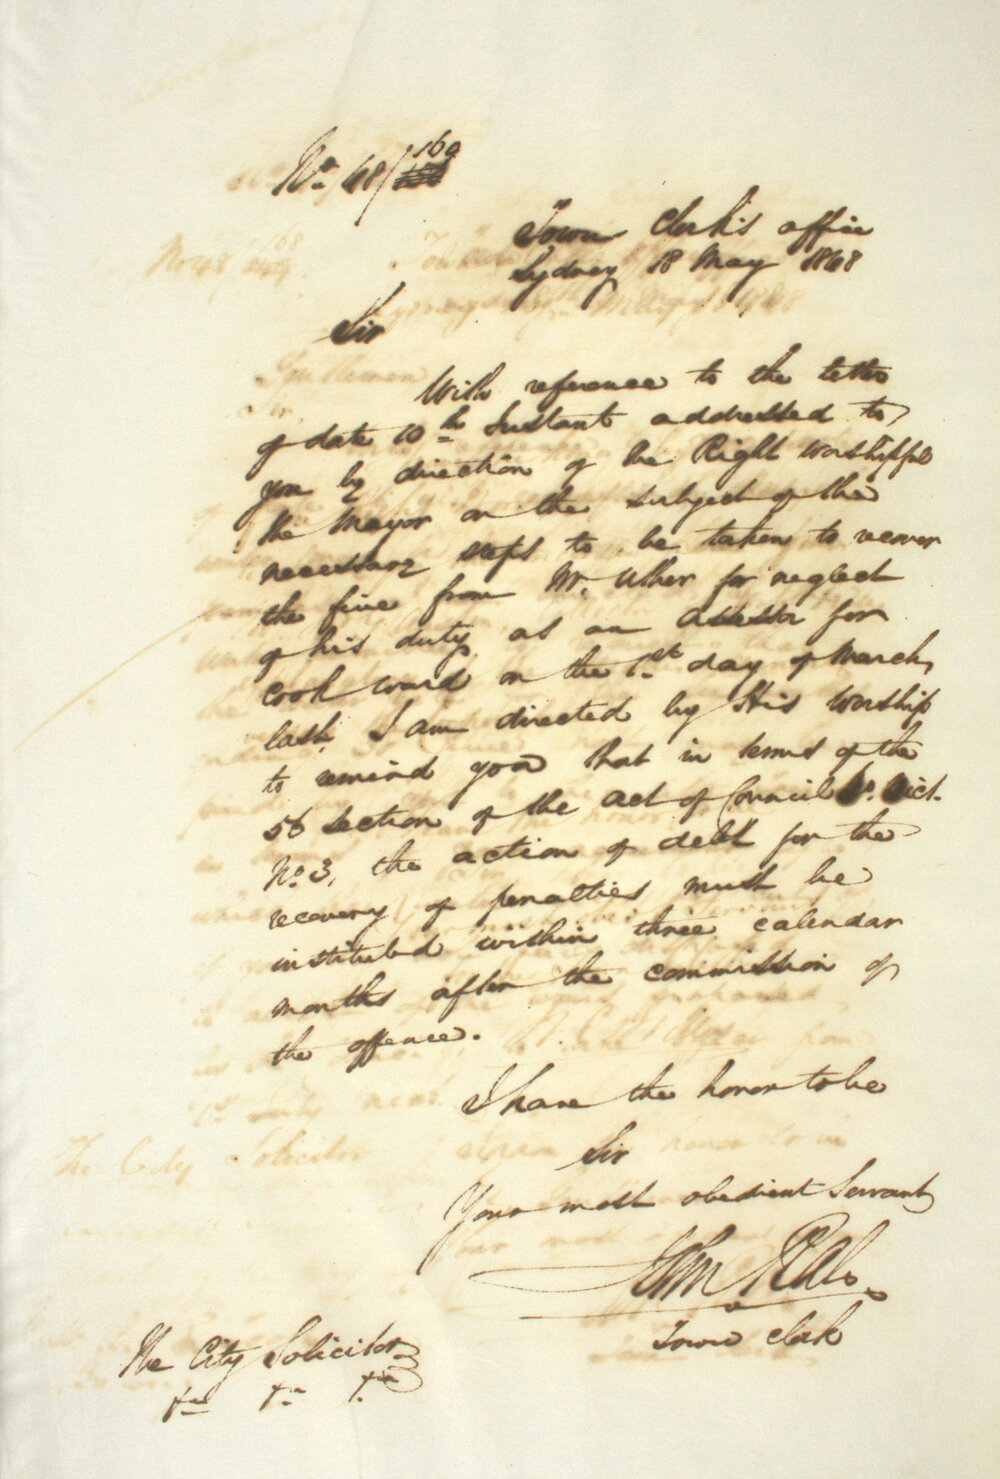 No. 48/169
Town Clerk's office
Sydney 18 May 1848
Sir
With reference to the letter
of date 10th Instant addressed to
you by direction of the Right Worshipful
the Mayor on the subject of the
necessary steps to be taken to recover
the fine from Mr. Uther for neglect
of his duty as an Assessor for
Cook ward on the 1st day of March,
last, I am directed by His Worship
to remind you that in terms of the
56 Section of the act of Council Vict.
No. 3, the action of debt for the
recovery of penalties must be
instituted within three calendar
months after the commission of
the offence.
I have the honor to be
Sir
Your most obedient Servant
John
Town Clerk
The City Solicitor